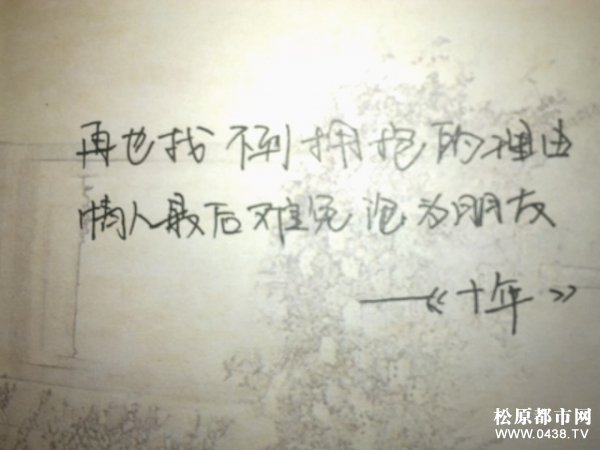 再也找不到拥抱的理由
情人最后难免沦为朋友
——《十年》
松原都市网
WWW.0438.TV